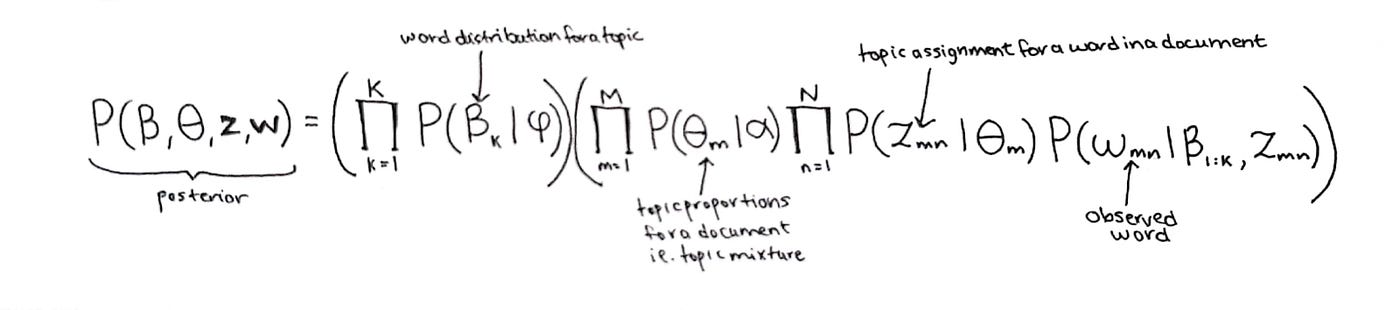 word distribution for a topic
topic assignment for a word in a document
P(β,θ,z,w) = (∏_{k=1}^{K} P(β_k|φ))(∏_{m=1}^{M} P(θ_m|α) ∏_{n=1}^{N} P(z_{mn}|θ_m) P(w_{mn}|β_{1:K}, z_{mn}))
posterior
topic proportions
for a document
ie. topic mixture
observed
word